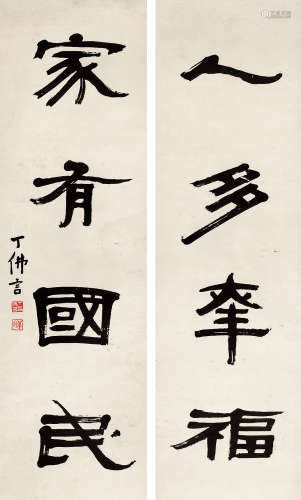 人多幸福
家有國民
丁佛言